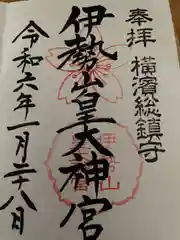 奉拝 横濱総鎮守
伊勢山皇大神宮
令和六年一月二十八日